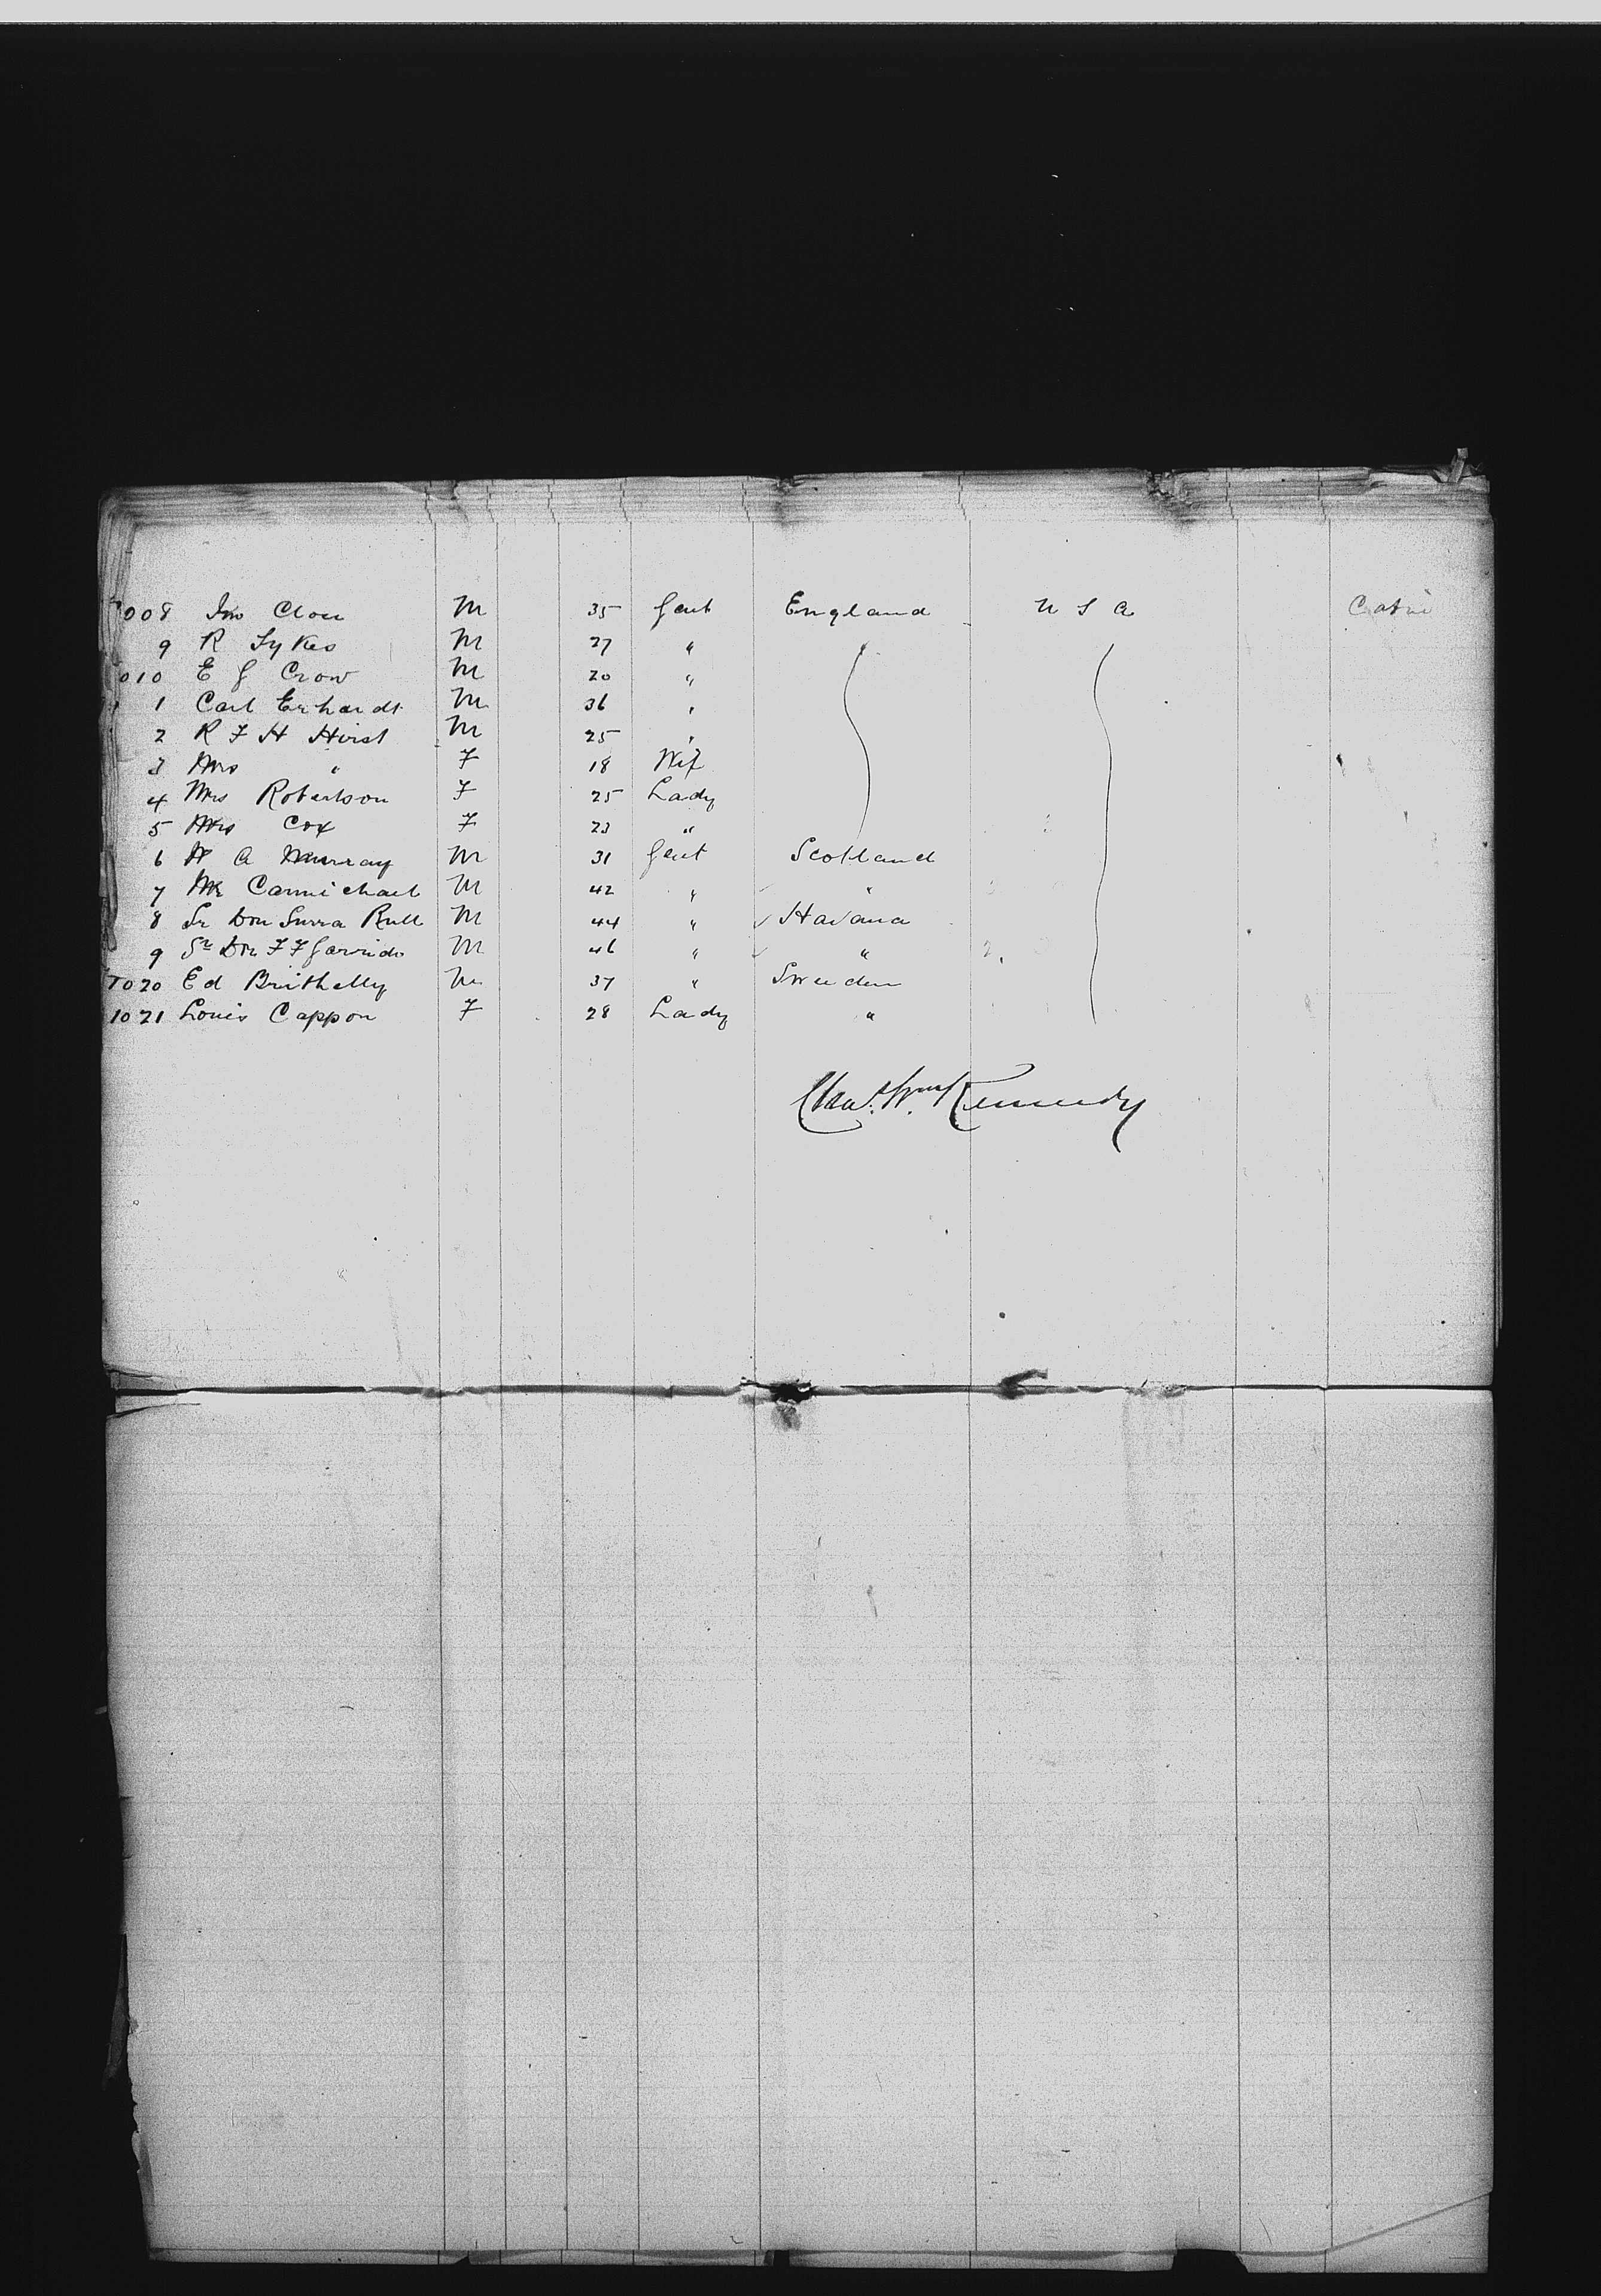 1008 Jno Clou M 35 Gent England U S A Cabin
9 R Sykes M 27 "
1010 E G Crow M 20 "
1 Carl Erhardt M 36 "
2 R F H Hirst M 25 "
3 Mrs " F 18 Wif
4 Mrs Robertson F 25 Lady
5 Mrs Cox F 23 "
6 W A Murray M 31 Gent Scotland
7 Mr Carmichael M 42 " "
8 Sr Don Surra Rull M 44 " Havana
9 Sr Don F F Garrido M 46 " "
1020 Ed Brithelly M 37 " Sweden
1021 Louis Cappon F 28 Lady "
Chas. Wm Kennedy